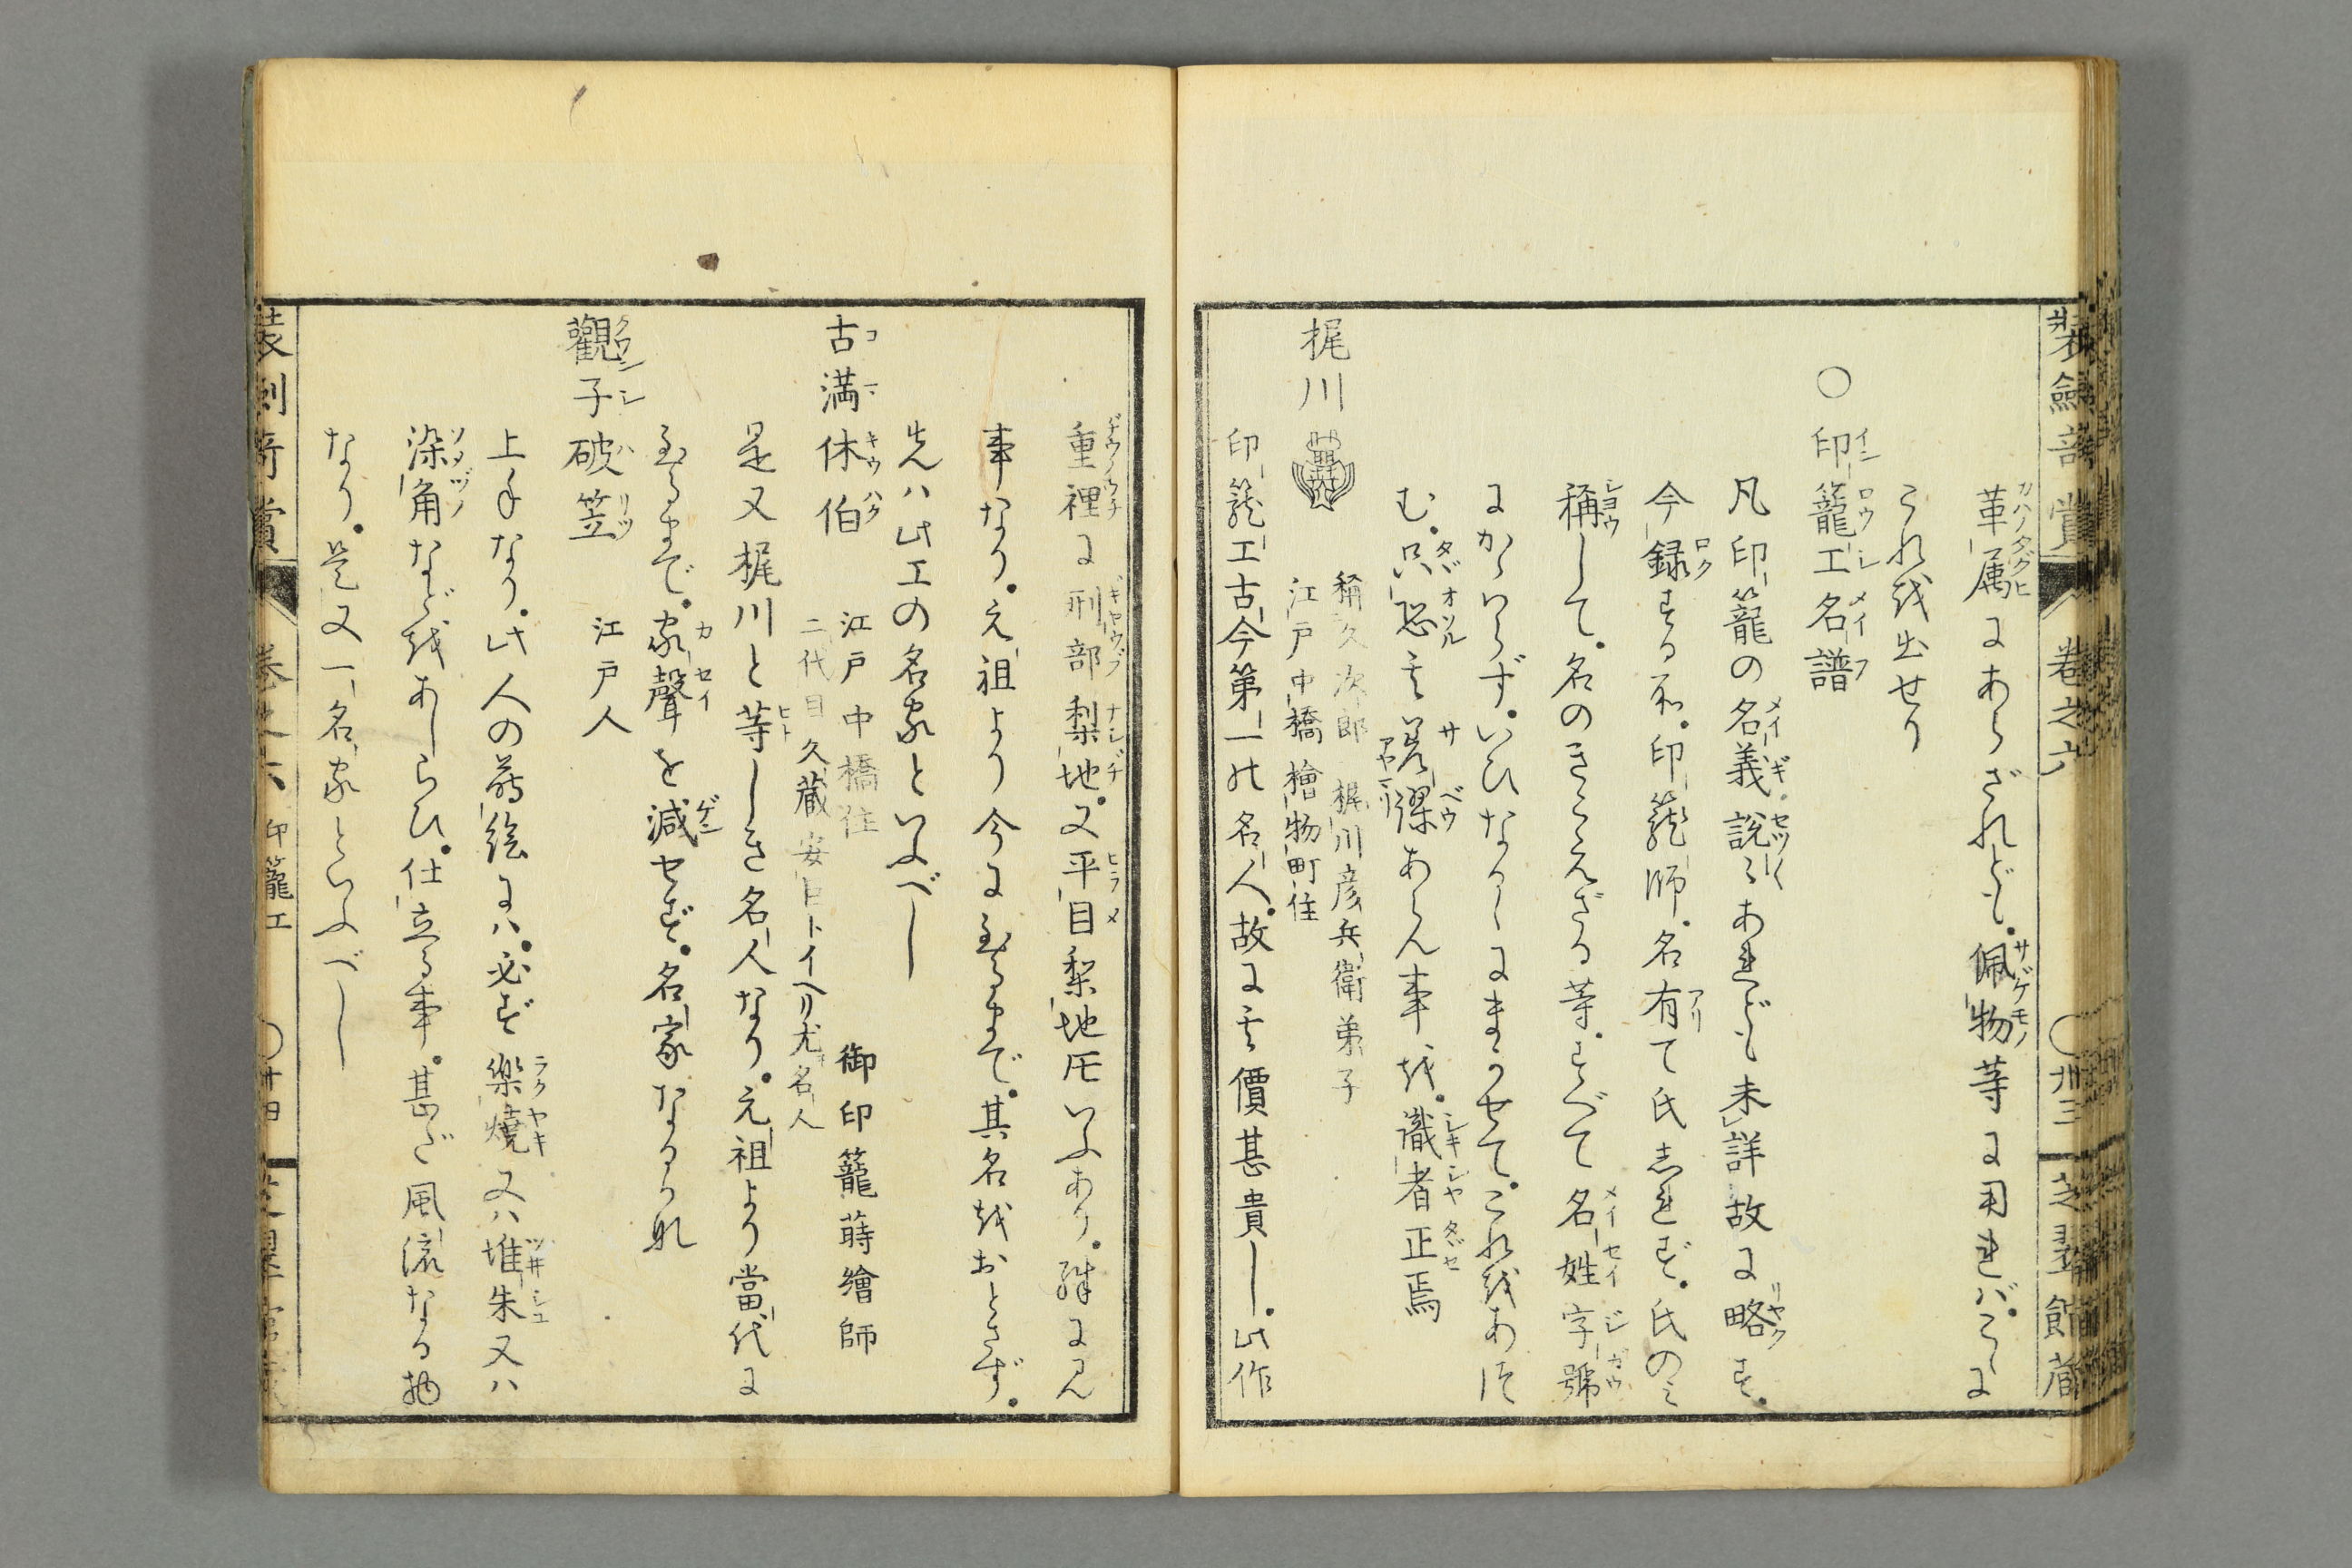 装劔竒賞 卷之六 〇卅三 芝翠館藏
革属にあらざれども。佩物等に用れバ。こゝに
これ越出せり
〇印籠工名譜
凡印籠の名義説〻あれども未詳故に略す。
今録する所。印籠師。名有て氏志れず。氏のミ
稱して。名のきこえざる等。すべて名姓字號
にかゝいらず。いひならハしにまかせて。これ越あつ
む。只恐其差謬あらん事越。識者正焉
梶川
稱久次郎 梶川彦兵衛弟子
江戸中橋檜物町住
印籠工古今第一の名人。故に其價甚貴し。此作
重裡に刑部梨地。又平目梨地圧いふあり。殊に見
事なり。元祖より今に至るまで。其名越おとさず。
先ハ此工の名家といふべし
古満休伯
江戸中橋住 御印籠蒔繪師
二代目久藏安巨トイヘリ尤名人
是又梶川と等しき名人なり。元祖より當代に
至るまで。家聲を減セず。名家なるかな
觀子破笠 江戸人
上手なり。此人の蒔絵にハ。必ず樂燒又ハ堆朱又ハ
染角など越あしらひ。仕立る事。甚だ風流なる物
なり。是又一名家といふべし
装劔竒賞 卷之六 印籠工 〇卅四